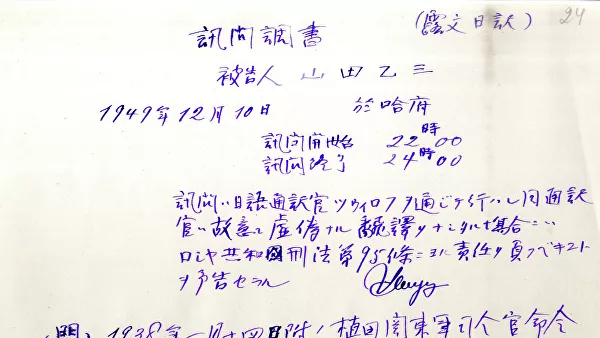 (露文日訳) 24
訊問調書
被告人 山田乙三
1949年12月10日 於哈府
訊問開始 22時00
訊問終了 24時00
訊問ハ日語通訳官ツヴィロフヲ通ジテ行ハレ同通訳
官ハ故意ニ虚偽ナル飜譯ヲナシタル場合ニハ
ロシヤ共和国刑法第95條ニヨル責任ヲ負フベキコト
ヲ予告セラル
(問) 1938年一月十四日附ノ植田関東軍司令官命令